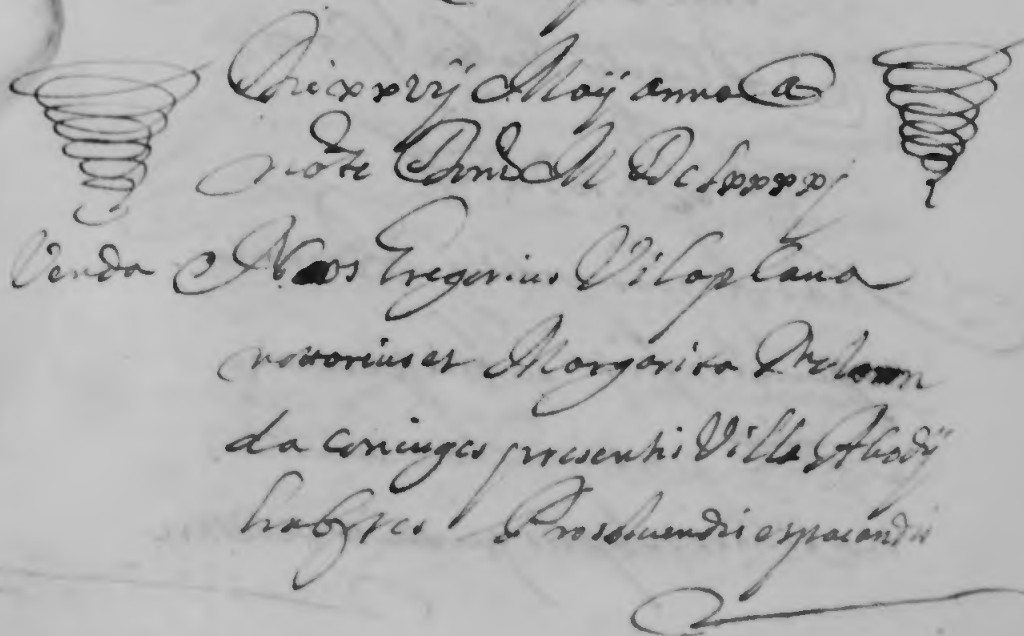 Die xxvij Maij anno a
nate Domi M DC Lxxxx
Venda Nos Gregorius Vilaplana
nottarius et Margarita
da coniuges presenti Villa Alcodij
habrcs Pro solvendis et pacandis